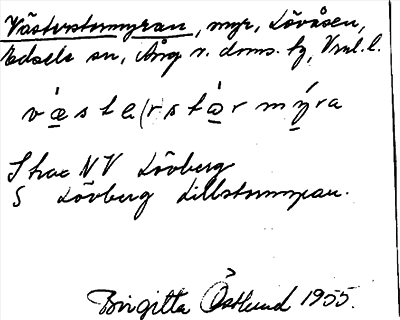 Västerstormyran, myr, Lövåsen,
Edsele sn, Ång v. doms. hg, Vnl. l.
v æ s t a (r s t ò r m ý ra
NV Lövberg
S Lövberg Lillstormyran.
Birgitta Östlund 1955.